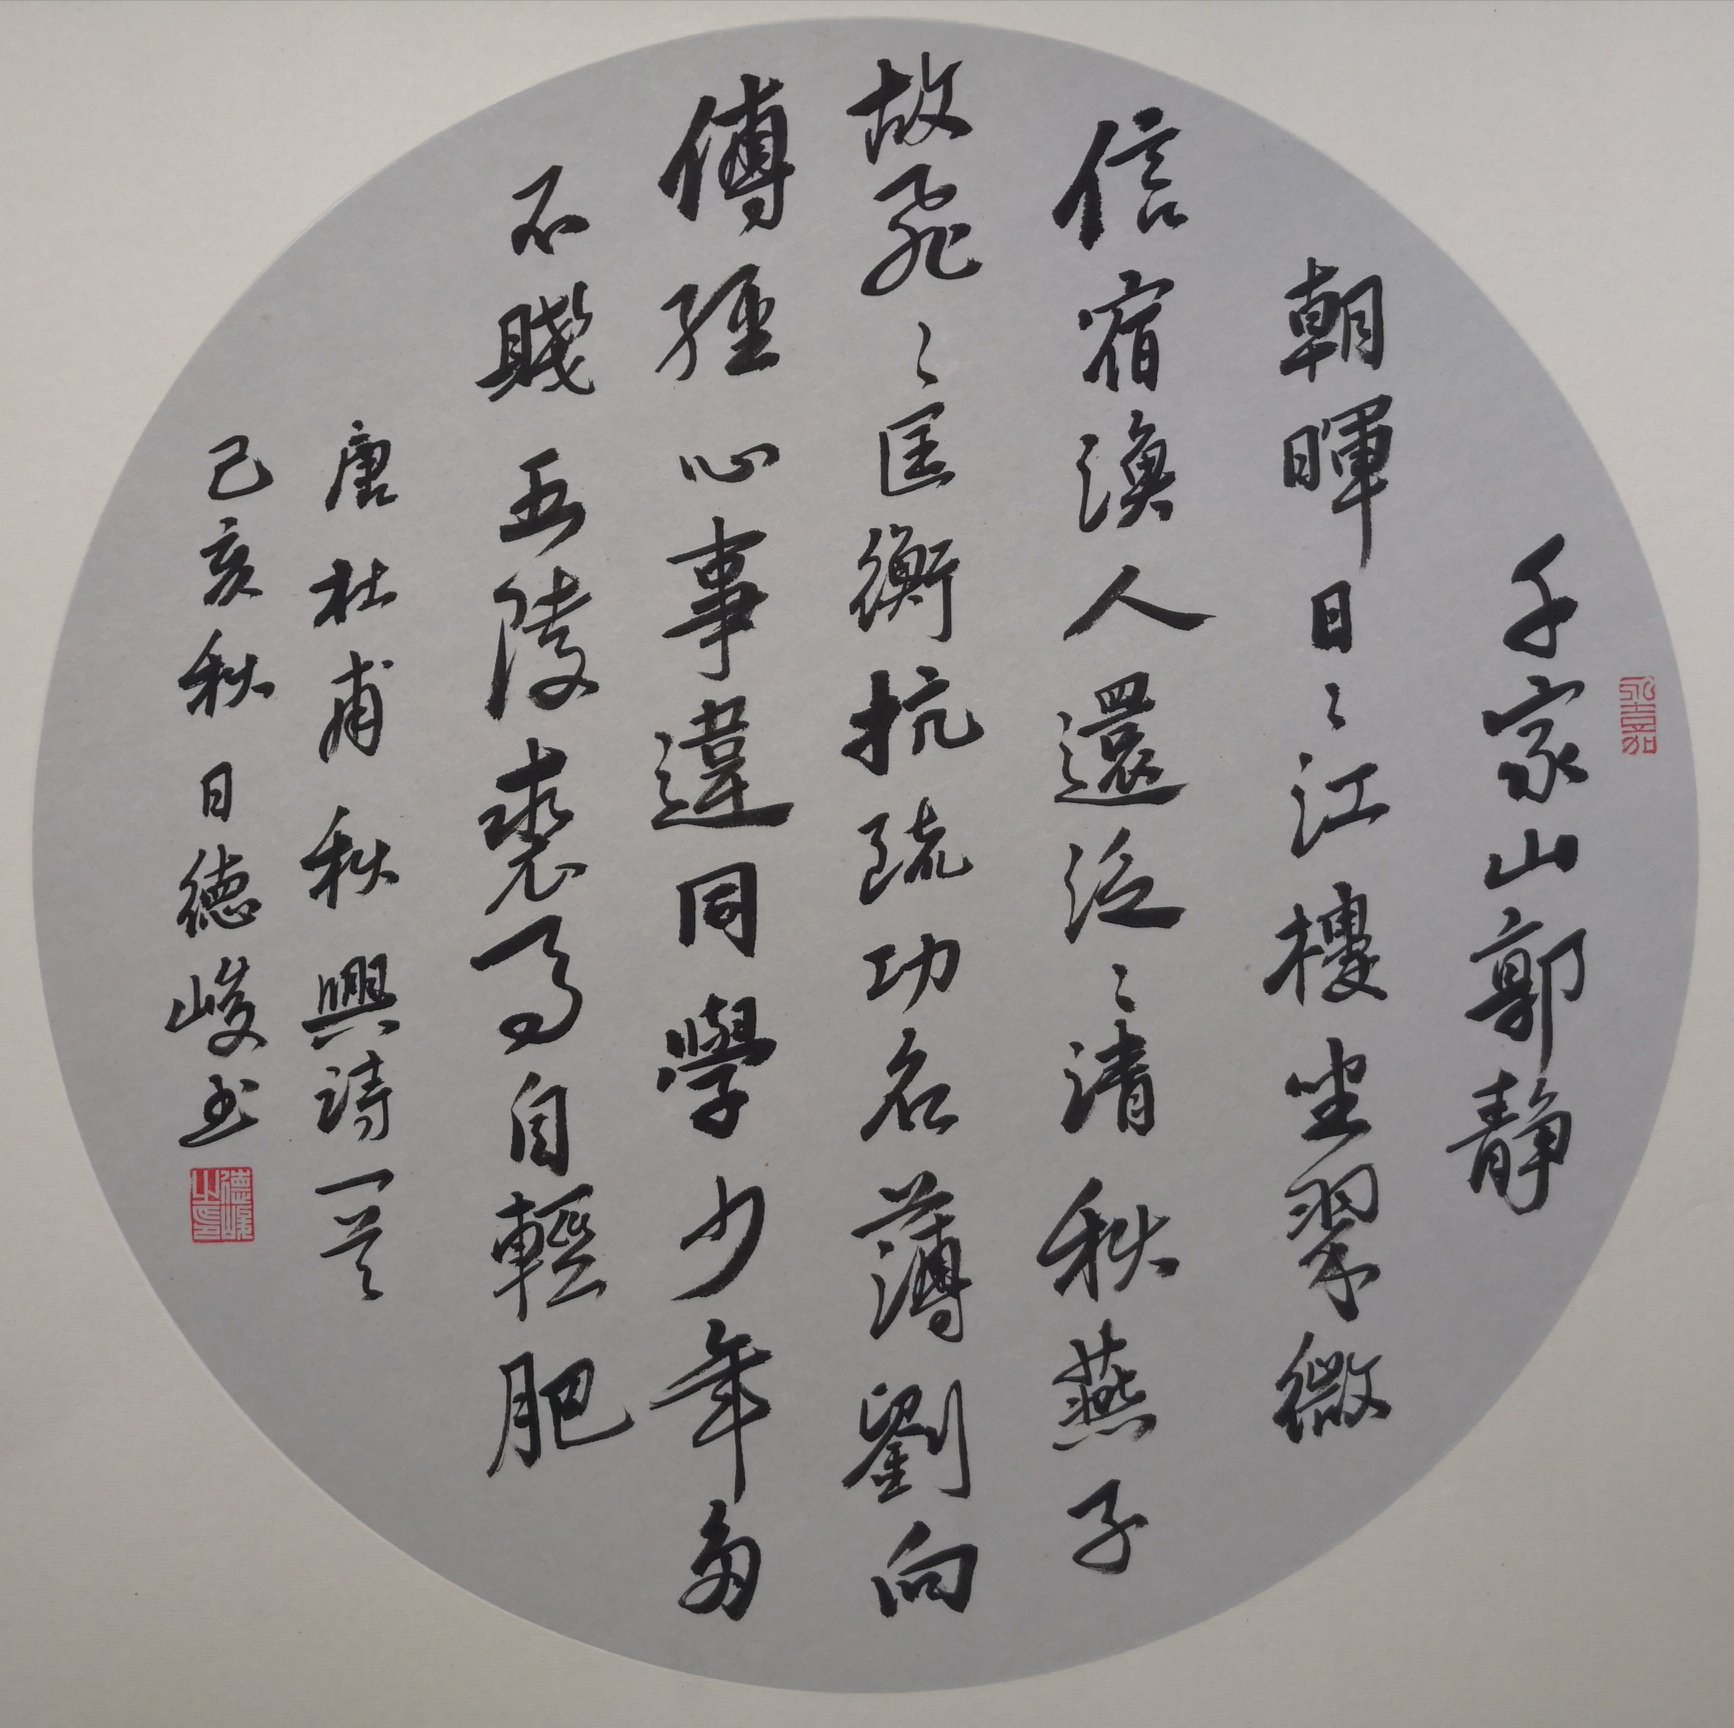 千家山郭静
朝暉日〻江樓坐翠微
信宿漁人還泛〻清秋燕子
故飛〻匡衡抗疏功名薄劉向
傅經心事違同學少年多
不賤五陵裘馬自輕肥
唐杜甫秋興詩一首
己亥秋日德峻书